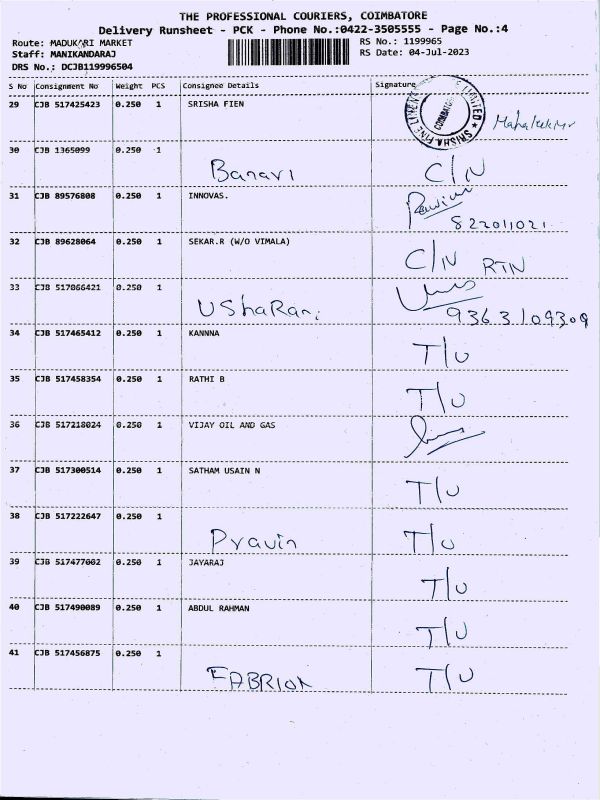 THE PROFESSIONAL COURIERS, COIMBATORE
Delivery Runsheet - PCK - Phone No.:0422-3505555 - Page No.:4
Route: MADUKARI MARKET RS No.: 1199965
Staff: MANIKANDARAJ RS Date: 04-Jul-2023
DRS No.: DCJB119996504
S No Consignment No Weight PCS Consignee Details Signature
29 CJB 517425423 0.250 1 SRISHA FIEN
30 CJB 1365099 0.250 1 Banari C/N
31 CJB 89576808 0.250 1 INNOVAS.
822011021
32 CJB 89628064 0.250 1 SEKAR.R (W/O VIMALA) C/N RTN
33 CJB 517066421 0.250 1 UShaRani
9363109309
34 CJB 517465412 0.250 1 KANNNA T/U
35 CJB 517458354 0.250 1 RATHI B T/U
36 CJB 517218024 0.250 1 VIJAY OIL AND GAS
37 CJB 517300514 0.250 1 SATHAM USAIN N T/U
38 CJB 517222647 0.250 1 Pravin T/U
39 CJB 517477002 0.250 1 JAYARAJ T/U
40 CJB 517490089 0.250 1 ABDUL RAHMAN T/U
41 CJB 517456875 0.250 1 T/U